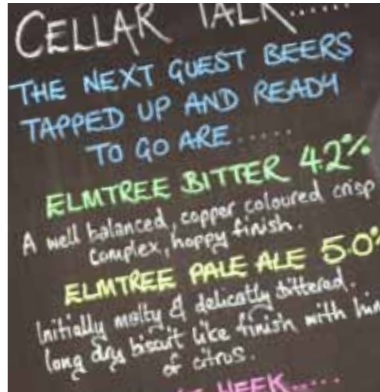 CELLAR TALK......
THE NEXT GUEST BEERS
TAPPED UP AND READY
TO GO ARE.....
ELMTREE BITTER 4.2%
A well balanced, copper coloured crisp
complex, hoppy finish.
ELMTREE PALE ALE 5.0%
Initially malty & delicatly bittered.
long dry biscuit like finish with
of citrus.
WEEK.....